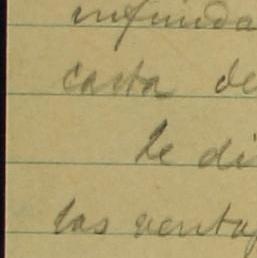 infunda
carta de
le di
las venta